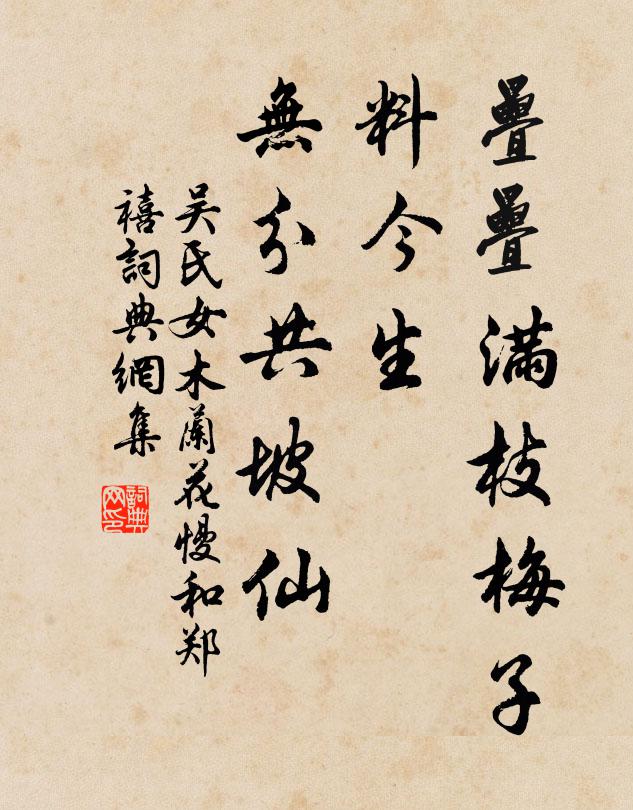 疊疊滿枝梅子
料今生
無分共坡仙
吴氏女木蘭花慢和郑
禧詞典網集
詞典网印